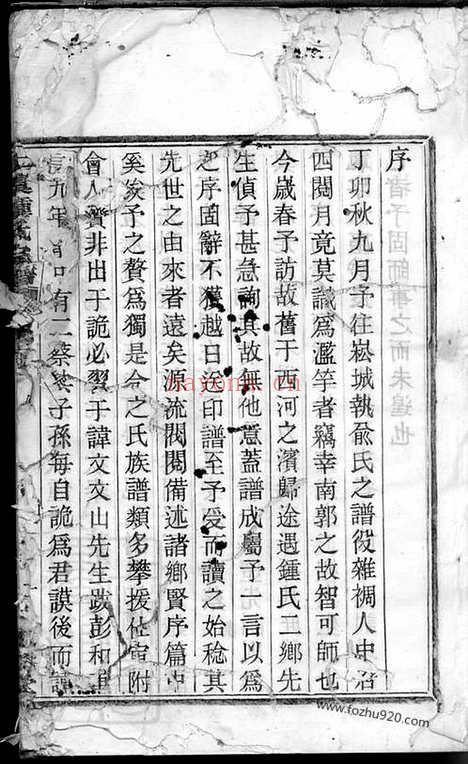 序
丁卯秋九月予往崧城執俞氏之譜役雜稠人中君
四閱月竟莫識為濫竽者竊幸南郭之故智可師也
今歲春予訪故舊于西河之濱歸途遇鍾氏二鄉先
生偵予甚急詢其故無他意蓋譜成屬予一言以為
之序固辭不獲越日治印譜至予受而讀之始稔其
先世之由來者遠矣源流閥閱備述諸鄉賢序篇中
奚俟予之贅為獨是今之氏族譜類多攀援依附
會人實非出于詭必習于諱文文山先生跋彭和甫
九年 有二祭 子孫每自詭為君謨後而
hayona.cn
www.fozhu920.com